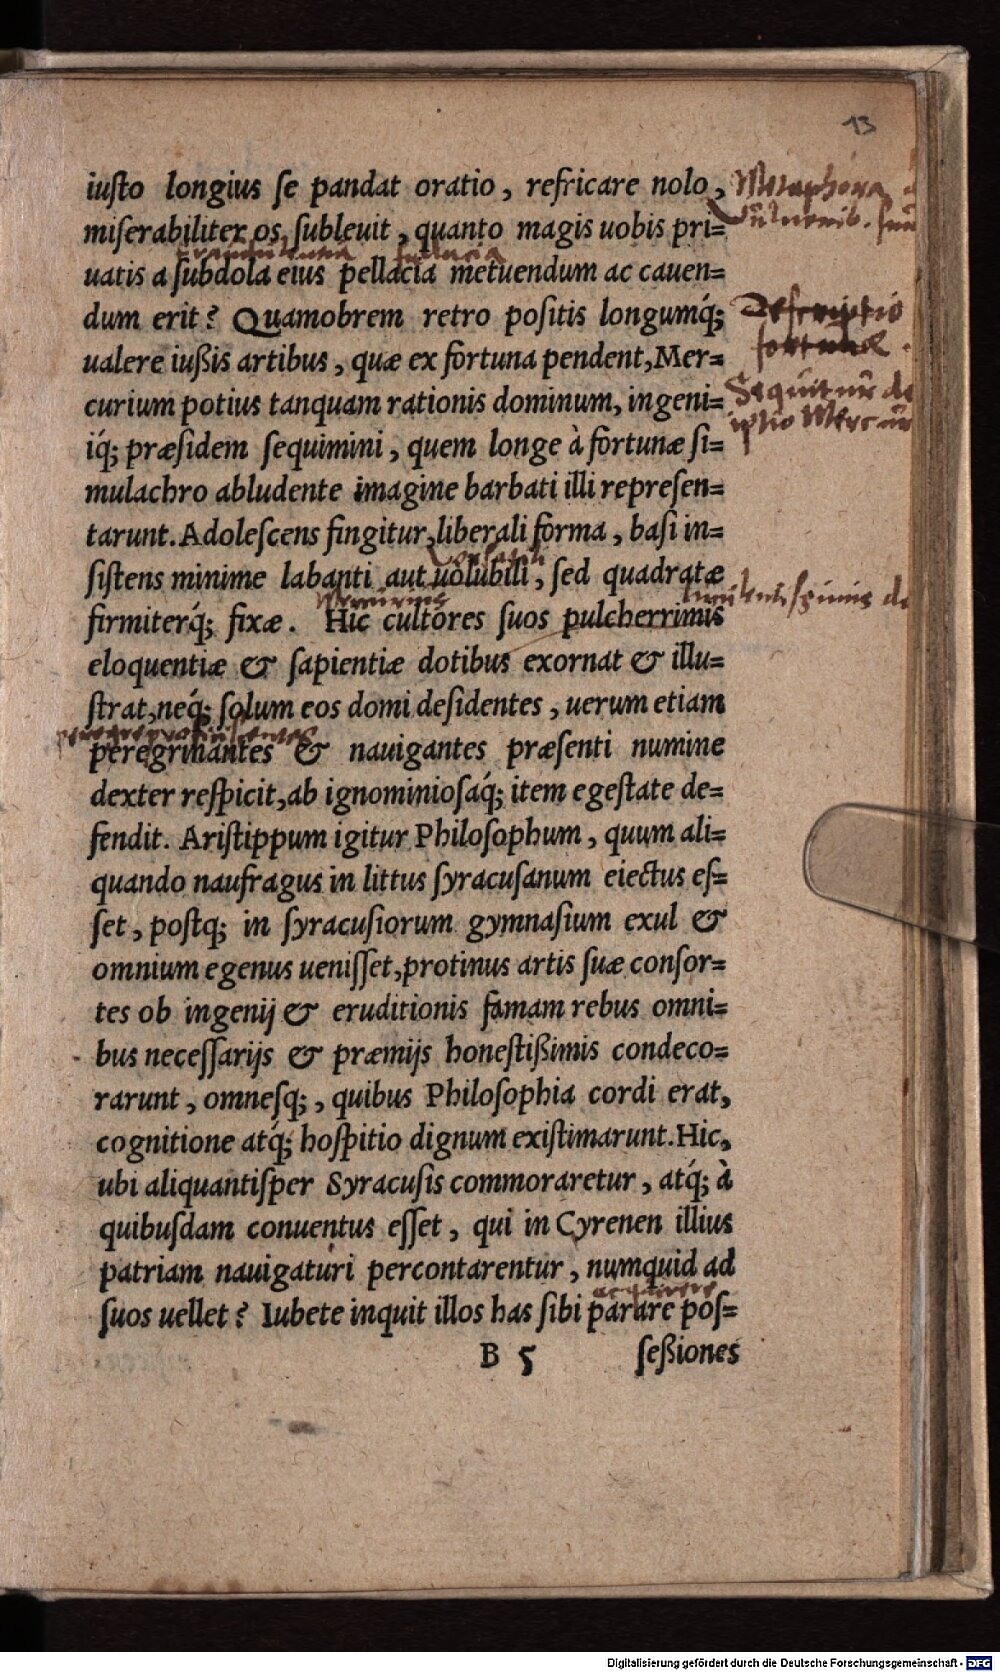 13
iuſto longius ſe pandat oratio, refricare nolo,
miſerabiliter os ſubleuit, quanto magis uobis pri=
uatis a ſubdola eius pellacia metuendum ac cauen=
dum erit? Quamobrem retro poſitis longumq́;
ualere iußis artibus, quæ ex fortuna pendent, Mer=
curium potius tanquam rationis dominum, ingeni=
iq́; præſidem ſequimini, quem longe à fortunæ ſi=
mulachro abludente imagine barbati illi repreſen=
tarunt. Adoleſcens fingitur, liberali forma, baſi in=
ſiſtens minime labanti aut uolubili, ſed quadratæ
firmiterq́; fixæ. Hic cultores ſuos pulcherrimis
eloquentiæ & ſapientiæ dotibus exornat & illu=
ſtrat, neq́; ſolum eos domi deſidentes, uerum etiam
peregrinantes & nauigantes præſenti numine
dexter reſpicit, ab ignominioſaq́; item egeſtate de=
fendit. Ariſtippum igitur Philoſophum, quum ali=
quando naufragus in littus ſyracuſanum eiectus eſ=
ſet, poſtq; in ſyracuſiorum gymnaſium exul &
omnium egenus ueniſſet, protinus artis ſuæ conſor=
tes ob ingenij & eruditionis famam rebus omni=
bus neceſſarijs & præmijs honeſtißimis condeco=
rarunt, omneſq́;, quibus Philoſophia cordi erat,
cognitione atq́; hoſpitio dignum exiſtimarunt. Hic,
ubi aliquantiſper Syracuſis commoraretur, atq́; à
quibuſdam conuentus eſſet, qui in Cyrenen illius
patriam nauigaturi percontarentur, numquid ad
ſuos uellet? Iubete inquit illos has ſibi parare poſ=
B 5 ſeßiones
Metaphora
Deſcriptio
fortunæ.
Sequitur de
Mercurius
acquirere
Digitalisierung gefördert durch die Deutsche Forschungsgemeinschaft - DFG